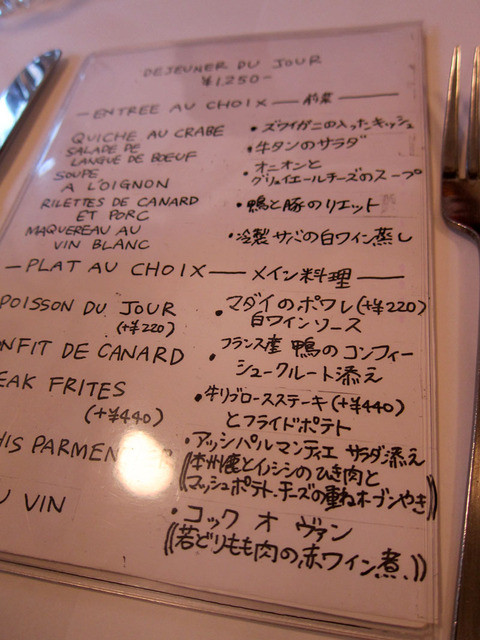 DEJEUNER DU JOUR
¥1,250-
ENTREE AU CHOIX — 前菜
QUICHE AU CRABE ・ズワイガニの入ったキッシュ
SALADE DE
LANGUE DE BOEUF ・牛タンのサラダ
SOUPE
A L'OIGNON
・オニオンと
グリュイエールチーズのスープ
RILETTES DE CANARD
ET PORC
・鴨と豚のリエット
MAQUEREAU AU
VIN BLANC
・冷製サバの白ワイン蒸し
PLAT AU CHOIX — メイン料理
POISSON DU JOUR
(+¥220)
・マダイのポワレ(+¥220)
白ワインソース
NFIT DE CANARD
・フランス産 鴨のコンフィー
シュークルート添え
EAK FRITES
(+¥440)
・牛リブロースステーキ(+¥440)
とフライドポテト
HIS PARMEN
・アッシパルマンティエ サラダ添え
(本州鹿とイノシシのひき肉と
マッシュポテト、チーズの重ねオーブンやき)
U VIN
・コック オ ヴァン
(若どりもも肉の赤ワイン煮、)